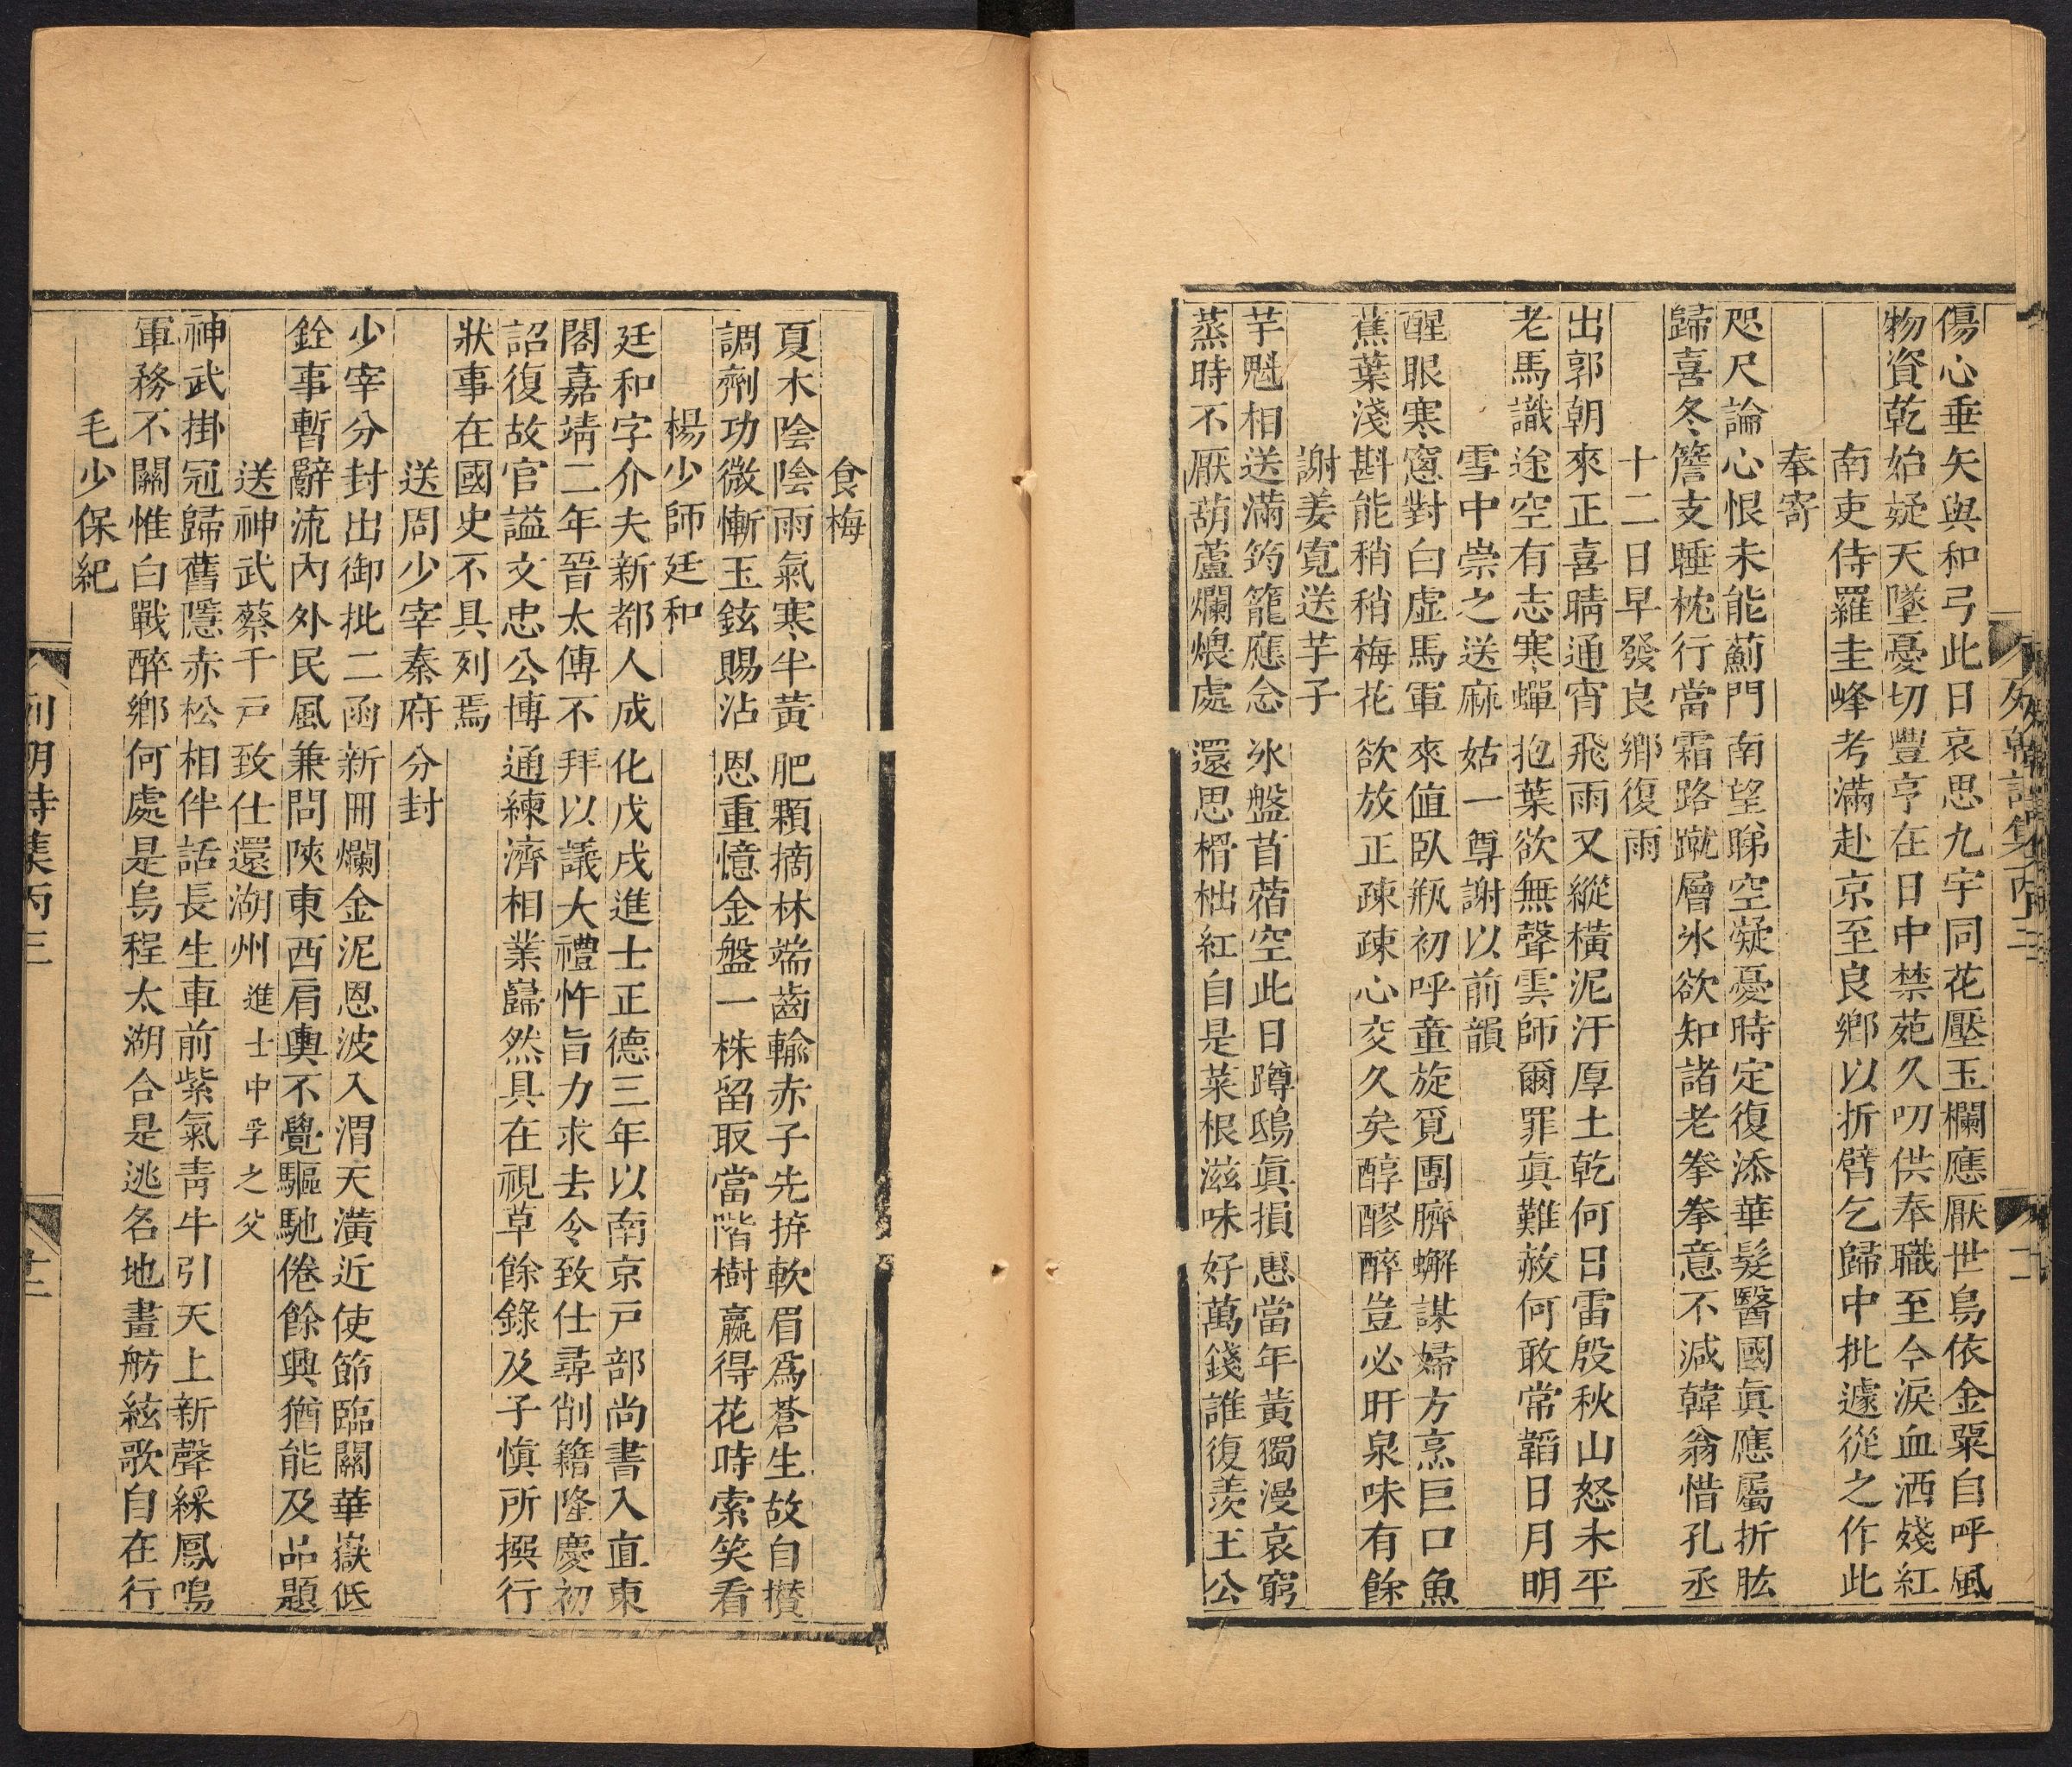 傷心垂矢與和弓此日哀思九宇同花壓玉欄應厭世烏依金粟自呼風
物資乾始疑天墜憂切豐亨在日中禁苑久叨供奉職至今淚血洒殘紅
南吏侍羅圭峰考滿赴京至良鄉以折臂乞歸中批遽從之作此
奉寄
咫尺論心恨未能薊門南望睇空凝憂時定復添華髮醫國眞應屬折肱
歸喜冬簷支睡枕行當霜路蹴層氷欲知諸老拳拳意不減韓翁惜孔丞
十二日早發良鄉復雨
出郭朝來正喜晴通宵飛雨又縱橫泥汙厚土乾何日雷殷秋山怒未平
老馬識途空有志寒蟬抱葉欲無聲雲師爾罪眞難赦何敢常韜日月明
雪中崇之送麻姑一尊謝以前韻
醒眼寒窻對白虛馬軍來值臥瓶初呼童旋覓團臍蠏謀婦方烹巨口魚
蕉葉淺斟能稍稍梅花欲放正疎疎心交久矣醇醪醉豈必盱泉味有餘
謝姜寛送芋子
芋魁相送滿筠籠應念氷盤苜蓿空此日蹲鴟眞損惠當年黃獨漫哀窮
蒸時不厭葫蘆爛煨處還思榾柮紅自是菜根滋味好萬錢誰復羡王公
食梅
夏木陰陰雨氣寒半黃肥顆摘林端齒輸赤子先拚軟眉爲蒼生故自攅
調劑功微慚玉鉉賜沾恩重憶金盤一株留取當階樹嬴得花時索笑看
楊少師廷和
廷和字介夫新都人成化戊戌進士正德三年以南京戸部尚書入直東
閣嘉靖二年晉太傅不拜以議大禮忤旨力求去令致仕尋削籍隆慶初
詔復故官謚文忠公博通練濟相業巋然具在視草餘錄及子愼所撰行
狀事在國史不具列焉
送周少宰秦府分封
少宰分封出御批二函新冊爛金泥恩波入渭天潢近使節臨關華嶽低
銓事暫辭流內外民風兼問陝東西肩輿不覺驅馳倦餘興猶能及品題
送神武蔡千戸致仕還湖州進士中孚之父
神武掛冠歸舊隱赤松相伴話長生車前紫氣靑牛引天上新聲綵鳳鳴
軍務不關惟白戰醉鄉何處是烏程太湖合是逃名地畫舫絃歌自在行
毛少保紀
列朝詩集丙三